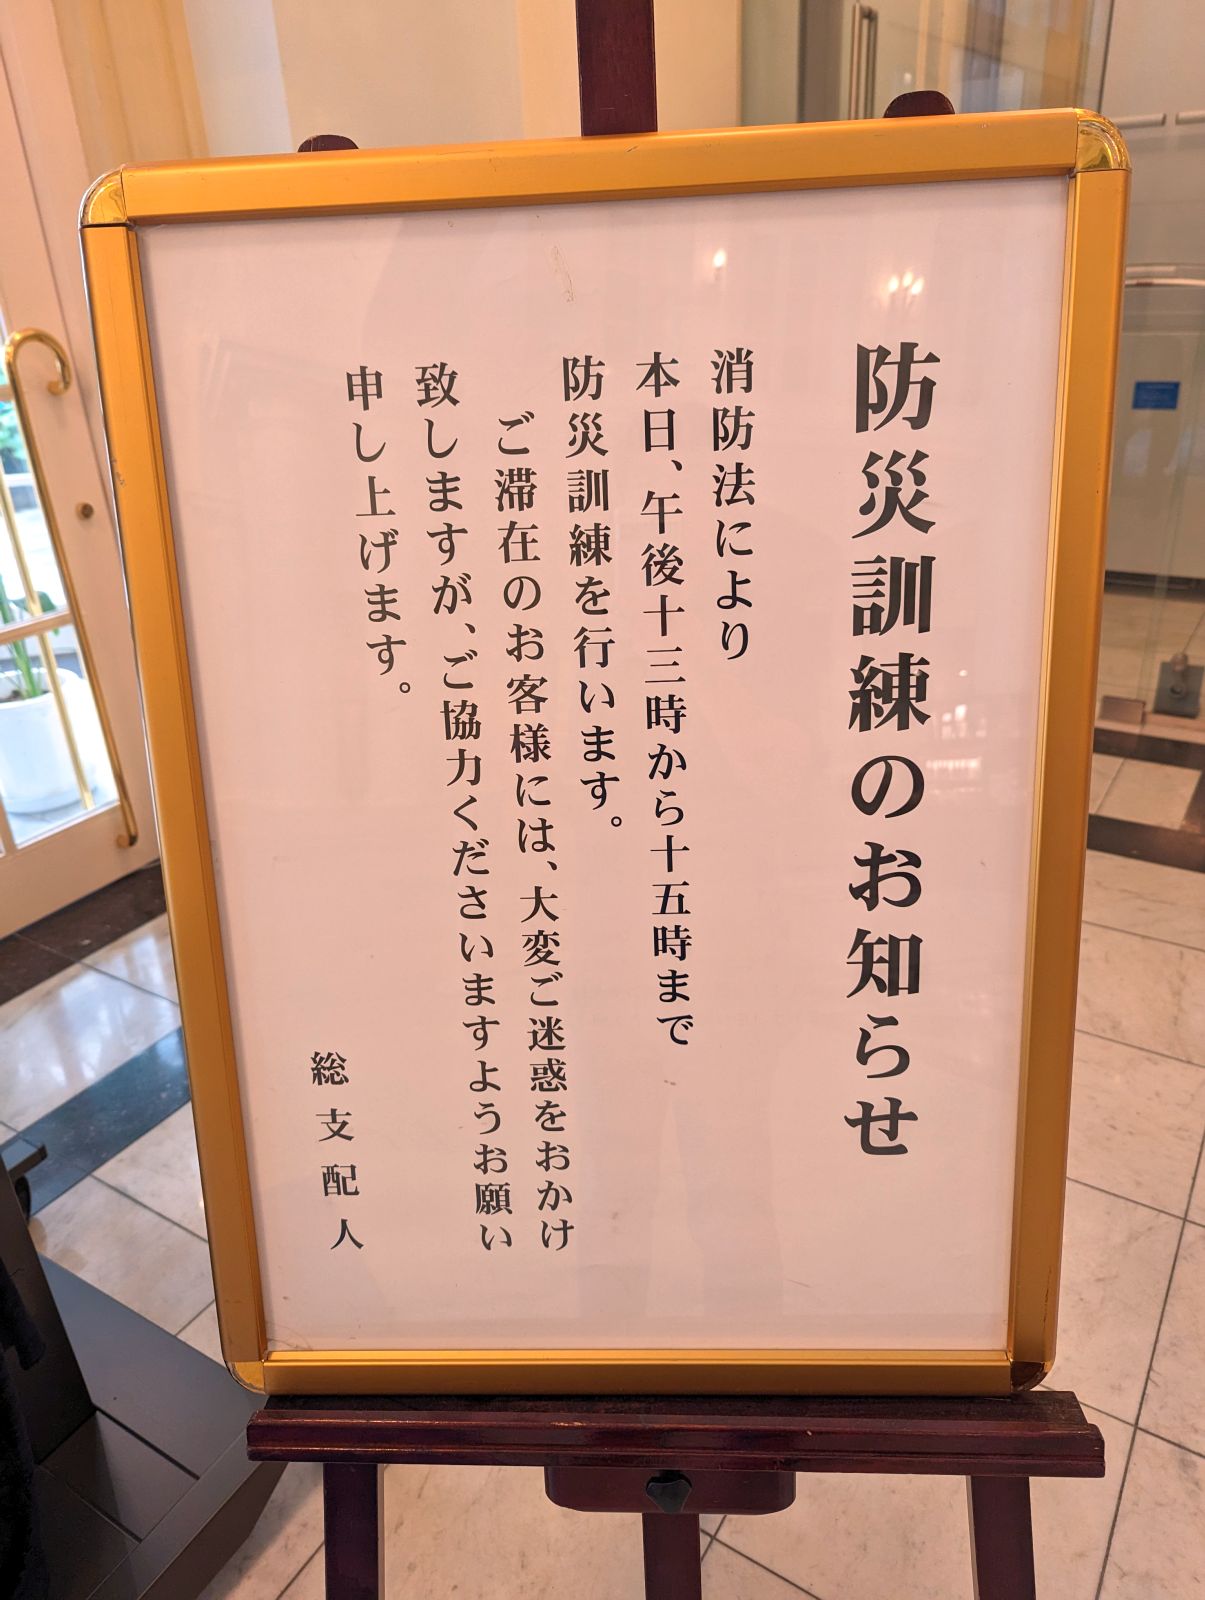 防災訓練のお知らせ
消防法により
本日、午後十三時から十五時まで
防災訓練を行います。
ご滞在のお客様には、大変ご迷惑をおかけ
致しますが、ご協力くださいますようお願い
申し上げます。
総支配人